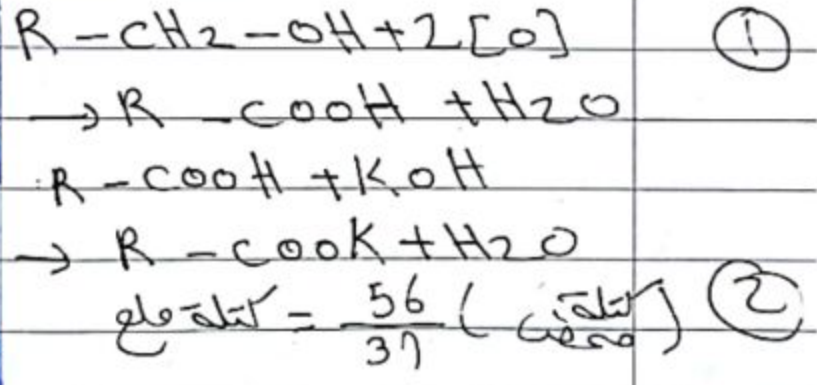 R-CH2-OH+2[O] ①
→ R-COOH + H2O
R-COOH + KOH
→ R-COOK + H2O
كتلة ملح = 56/37 (كتلة حمض) ②